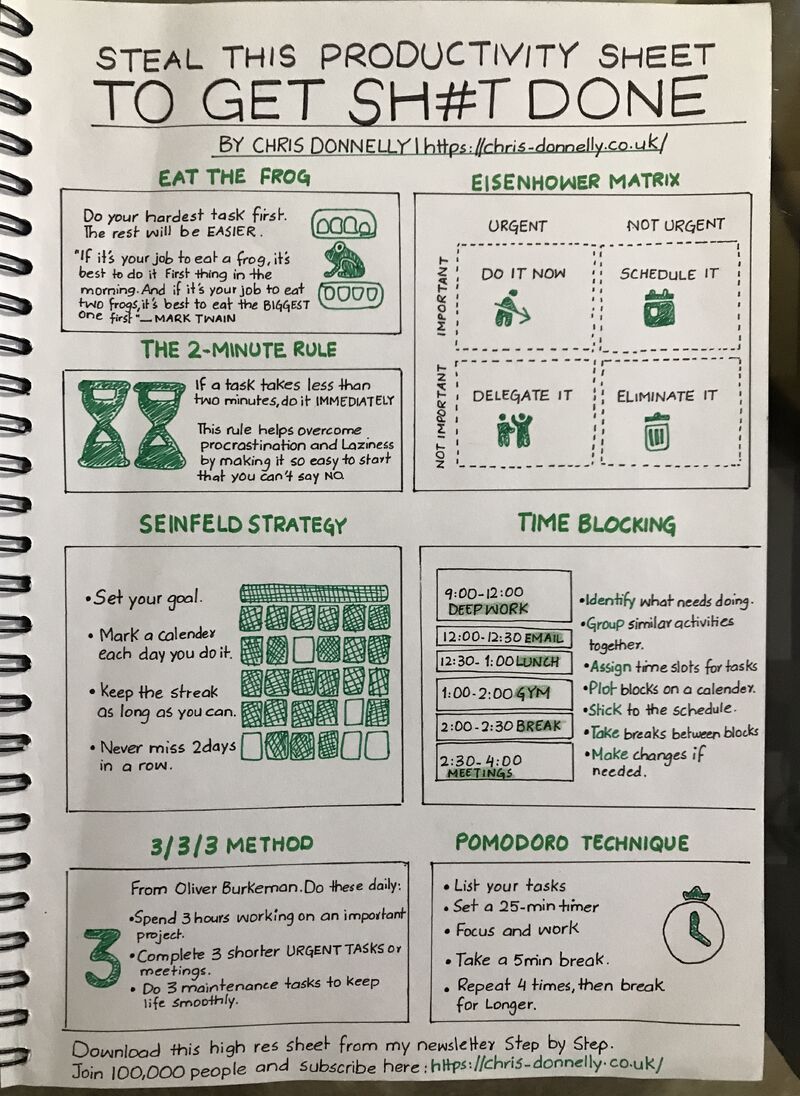 STEAL THIS PRODUCTIVITY SHEET
TO GET SH#T DONE
BY CHRIS DONNELLY | https://chris-donnelly.co.uk/
EAT THE FROG
Do your hardest task first.
The rest will be EASIER.
"If it's your job to eat a frog, it's
best to do it First thing in the
morning. And if it's your job to eat
two frogs, it's best to eat the BIGGEST
one first" — MARK TWAIN
EISENHOWER MATRIX
URGENT
NOT URGENT
IMPORTANT
DO IT NOW
SCHEDULE IT
NOT IMPORTANT
DELEGATE IT
ELIMINATE IT
THE 2-MINUTE RULE
If a task takes less than
two minutes, do it IMMEDIATELY
This rule helps overcome
procrastination and Laziness
by making it so easy to start
that you can't say NO.
SEINFELD STRATEGY
•Set your goal.
• Mark a calender
each day you do it.
• Keep the streak
as long as you can.
• Never miss 2days
in a row.
TIME BLOCKING
9:00-12:00
DEEP WORK
12:00-12:30 EMAIL
12:30-1:00 LUNCH
1:00-2:00 GYM
2:00-2:30 BREAK
2:30-4:00
MEETINGS
•Identify what needs doing.
•Group similar activities
together.
•Assign time slots for tasks
•Plot blocks on a calender.
•Stick to the schedule.
•Take breaks between blocks
•Make changes if
needed.
3/3/3 METHOD
3
From Oliver Burkeman. Do these daily:
•Spend 3 hours working on an important
project.
•Complete 3 shorter URGENT TASKS or
meetings.
• Do 3 maintenance tasks to keep
life smoothly.
POMODORO TECHNIQUE
• List your tasks
• Set a 25-min timer
• Focus and work
• Take a 5min break.
• Repeat 4 times, then break
for Longer.
Download this high res sheet from my newsletter Step by Step.
Join 100,000 people and subscribe here: https://chris-donnelly.co.uk/